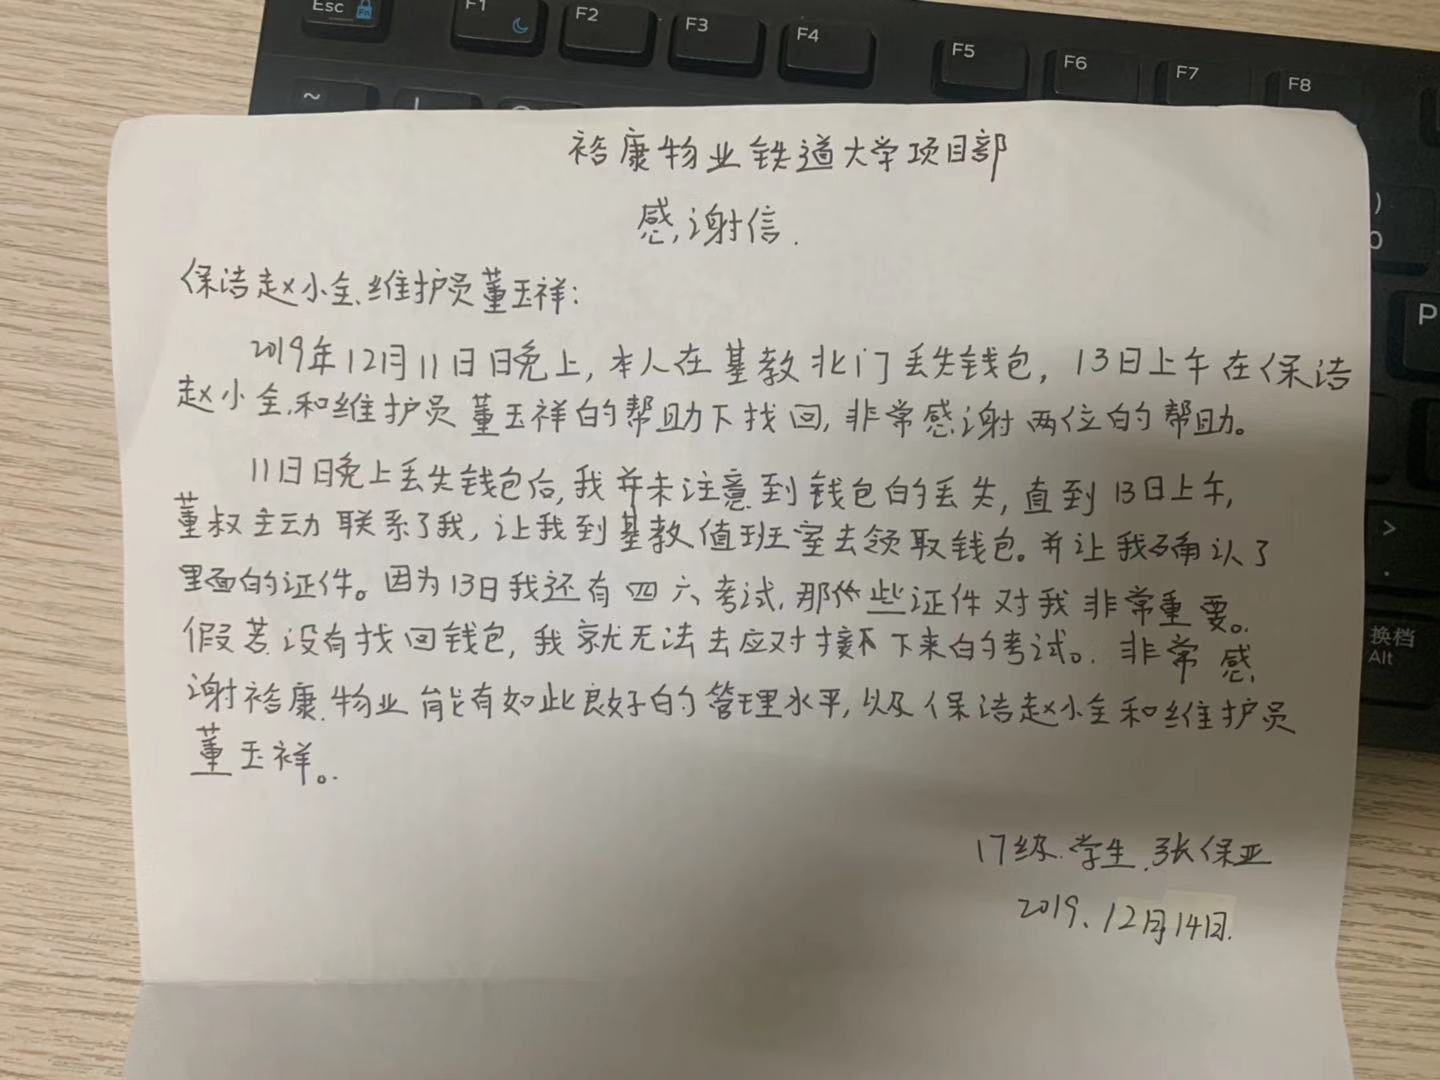 Esc
Fn
F1
F2
F3
F4
F5
F6
F7
F8
~
)
0
P
>
.
换档
Alt
裕康物业铁道大学项目部
感谢信.
保洁赵小全、维护员董玉祥：
2019年12月11日晚上，本人在基教北门丢失钱包，13日上午在保洁
赵小全、和维护员董玉祥的帮助下找回，非常感谢两位的帮助。
11日晚上丢失钱包后，我并未注意到钱包的丢失，直到13日上午，
董叔主动联系了我，让我到基教值班室去领取钱包。并让我确认了
里面的证件。因为13日我还有四六考试，那些证件对我非常重要。
假若没有找回钱包，我就无法去应对接下来的考试。非常感
谢裕康物业能有如此良好的管理水平，以及保洁赵小全和维护员
董玉祥。
17级学生张保亚
2019、12月14日.